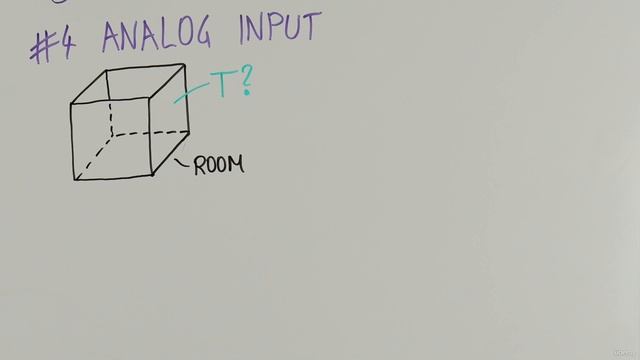 #4 ANALOG INPUT
T?
ROOM